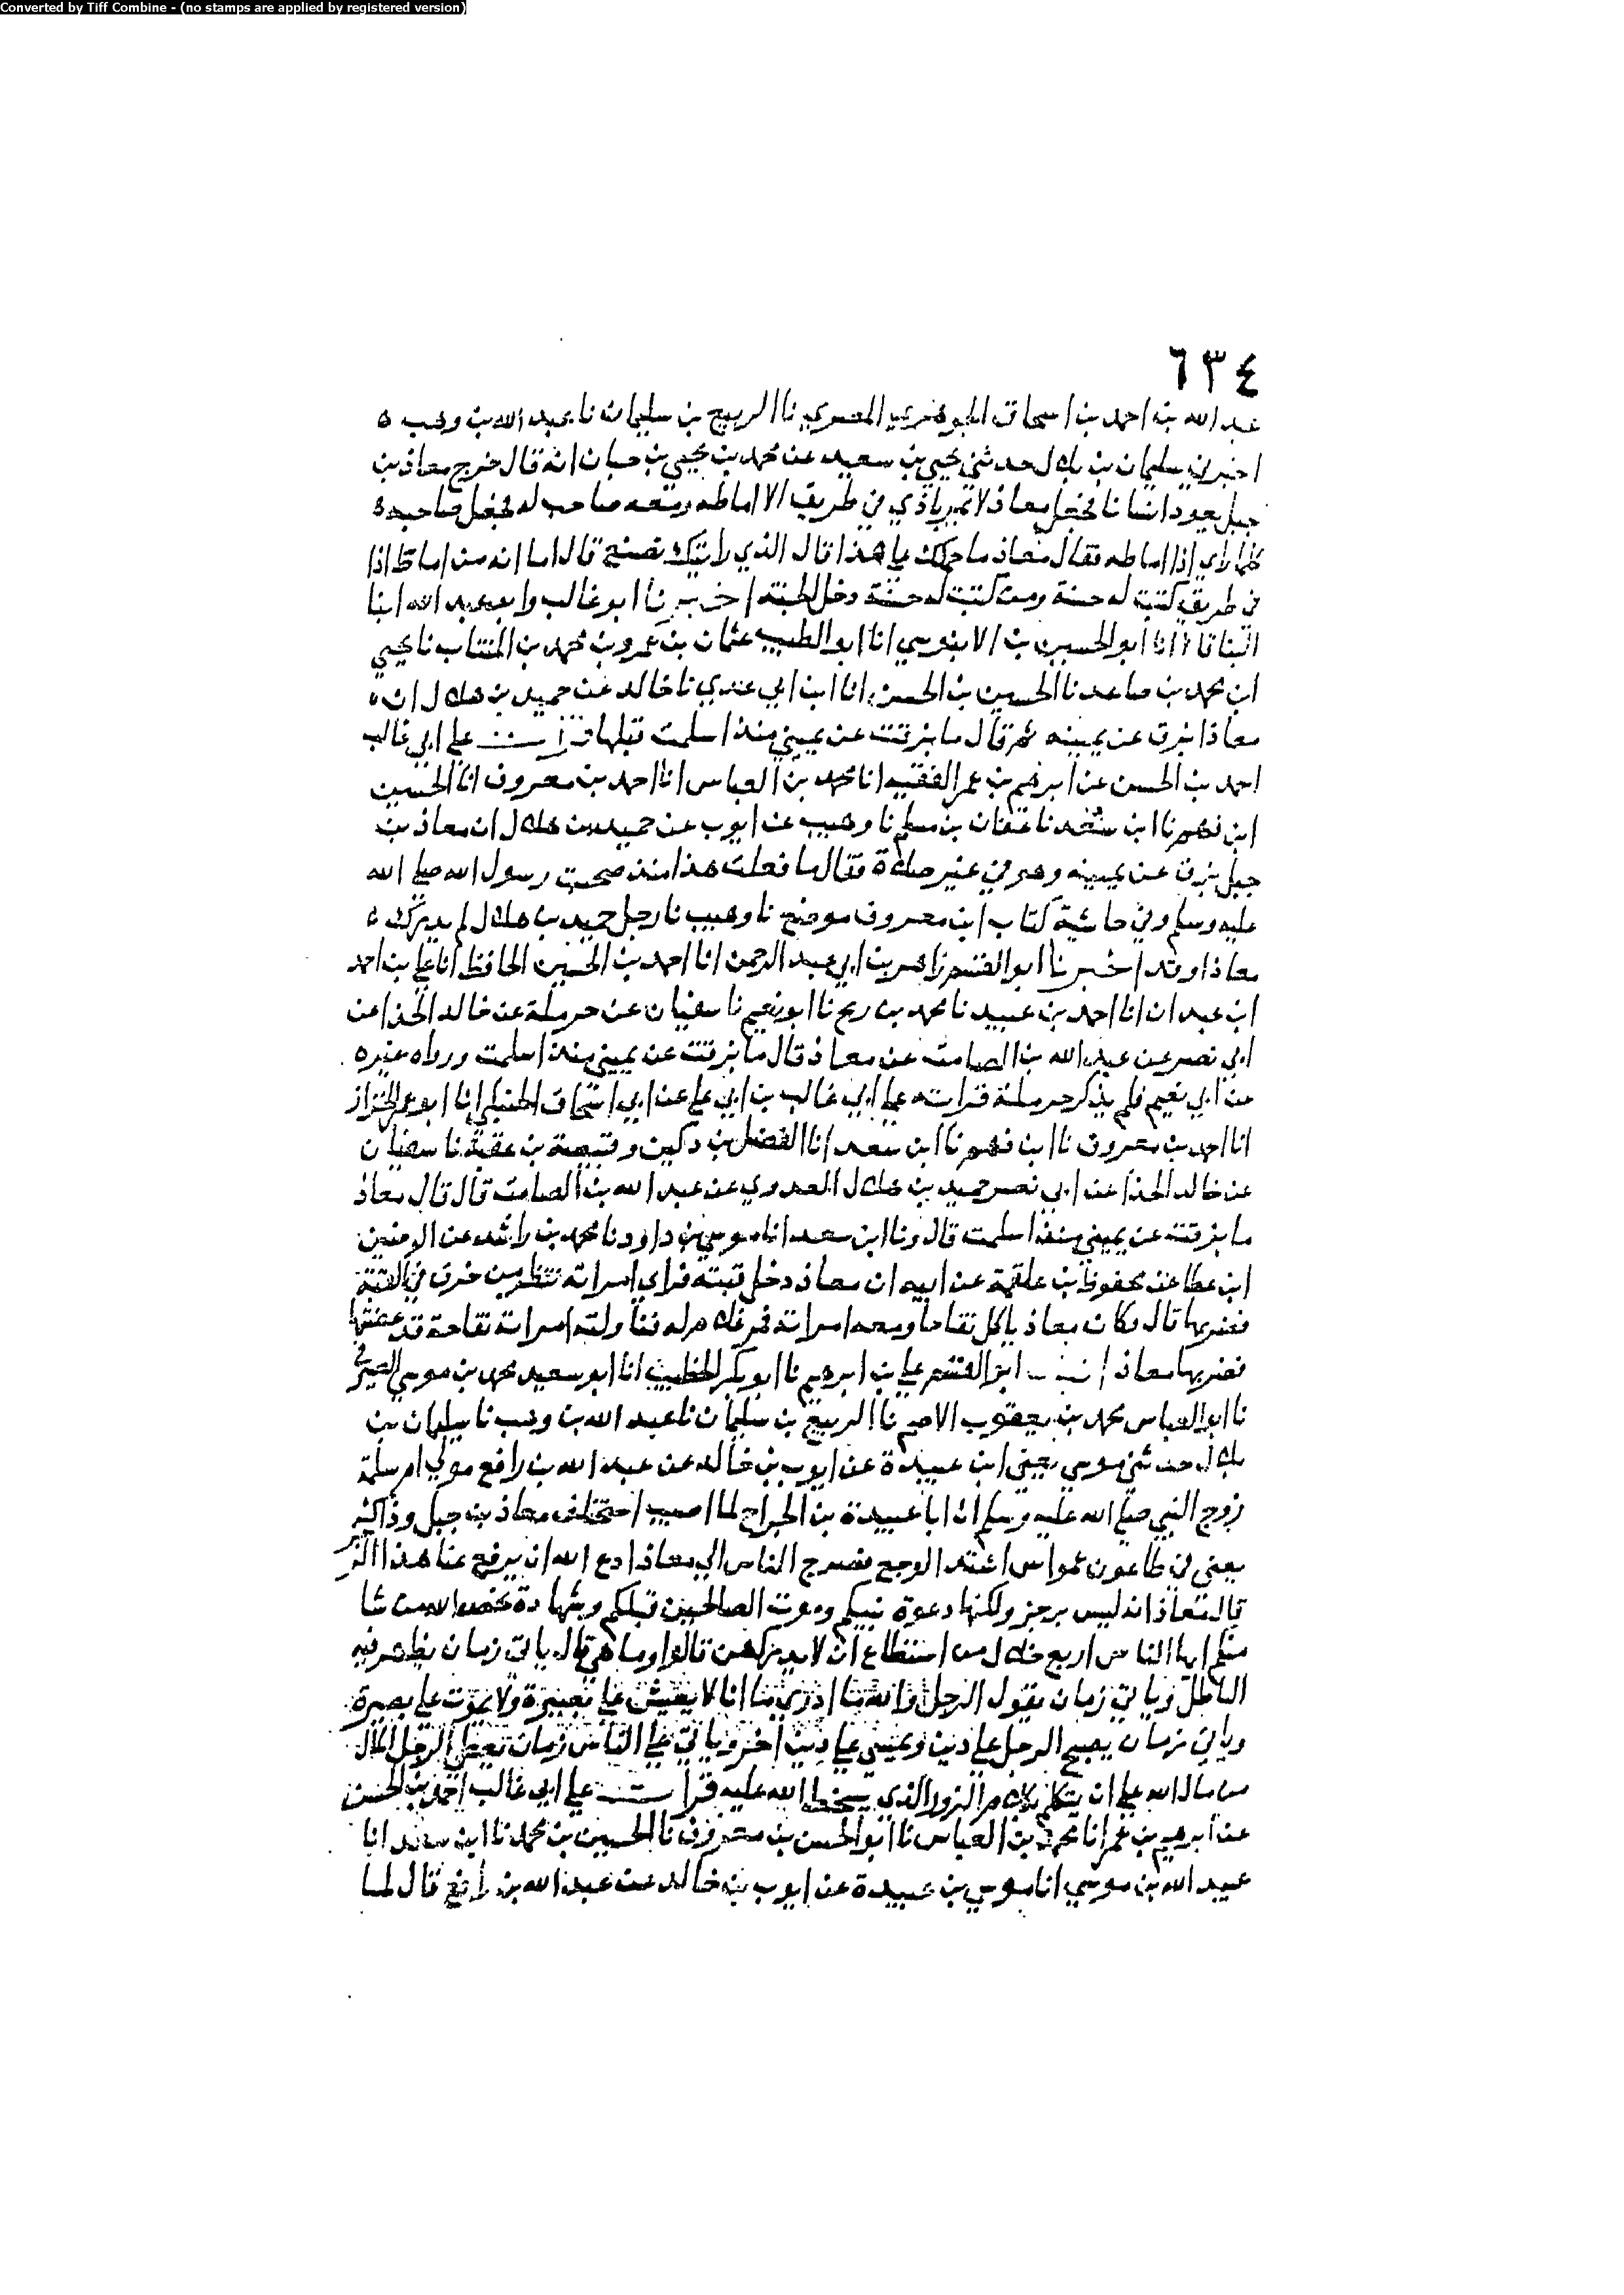 Converted by Tiff Combine - (no stamps are applied by registered version)
٦٣٤
عبد الله بن احمد بن اسحاق الجوهري المصري نا الربيع بن سليمان نا عبد الله بن وهب ه
اخبرني سليمان بن بلال حدثني يحيي بن سعيد عن محمد بن يحيي بن حبان انه قال خرج معاذ بن
جبل يعود انسانا فجعل معاذ لا يمر باذي في طريق الا اماطه ومعه صاحب له فجعل صاحبه ه
كلما راي اذا اماطه فقال معاذ ما حملك علي هذا قال الذي رايتك تصنع قال اما انه من اماط اذا
في طريق كتبت له حسنة ومن كتبت له حسنة دخل الجنة اخبرنا ابو غالب وابو عبد الله ابنا
البنا قالا انا ابو الحسين بن الابنوسي انا ابو الطيب عثمان بن عمرو بن محمد بن المنتاب نا يحيي
ابن محمد بن صاعد نا الحسين بن الحسن انا ابن ابي عدي نا خالد عن حميد بن هلال ان ه
معاذا بزق عن يمينه ثم قال ما بزقت عن يميني منذ اسلمت قبلها قرات علي ابي غالب
احمد بن الحسن عن ابرهيم بن عمر الفقيه انا محمد بن العباس انا احمد بن معروف انا الحسين
ابن فهم نا ابن سعد نا عفان بن مسلم نا وهيب عن ايوب عن حميد بن هلال ان معاذ بن
جبل بزق عن يمينه وهو في غير صلاة فقال ما فعلت هذا منذ صحبت رسول الله صلي الله
عليه وسلم وفي حاشية كتاب ابن معروف موضع نا وهيب نا رجل حميد بن هلال لم يدرك ه
معاذا وقد اخبرنا ابو القسم زاهر بن ابي عبد الرحمن انا احمد بن الحسين الحافظ انا علي بن احمد
ابن عبدان انا احمد بن عبيد نا محمد بن ربح نا ابو نعيم نا سفيان عن حرملة عن خالد الحذا عن
ابي نصر عن عبد الله بن الصامت عن معاذ قال ما بزقت عن يميني منذ اسلمت ورواه غيره
عن ابي نعيم فلم يذكر حرملة قراته علي ابي غالب بن ابي علي عن ابي اسحاق الحنبلي انا ابو عمر الخزاز
انا احمد بن معروف نا ابن فهم نا ابن سعد انا الفضل بن دكين وقبيصة بن عقبة نا سفيان
عن خالد الحذا عن ابي نصر حميد بن هلال العدوي عن عبد الله بن الصامت قال قال معاذ
ما بزقت عن يميني منذ اسلمت قال ونا ابن سعد انا موسي بن داود نا محمد بن راشد عن الوضين
ابن عطا عن محفوظ بن علقمة عن ابيه ان معاذ دخل قبته فراي امراته تنظر من خرق في القبة
فضربها قال وكان معاذ ياكل تفاحا ومعه امراته فمر غلام له فناولته امراته تفاحة قد عضتها
فضربها معاذ ابو القسم علي بن ابرهيم نا ابو بكر الخطيب انا ابو سعيد محمد بن موسي الصيرفي
نا ابو العباس محمد بن يعقوب الاصم نا الربيع بن سليمان نا عبد الله بن وهب نا سليمان بن
بلال حدثني موسي يعني ابن عبيدة عن ايوب بن خالد عن عبد الله بن رافع مولي ام سلمة
زوج النبي صلي الله عليه وسلم ان ابا عبيدة بن الجراح لما اصيب استخلف معاذ بن جبل وذاك
يعني في طاعون عمواس اشتد الوجع فصرح الناس الي معاذ ادع الله ان يرفع عنا هذا الرجز
قال معاذ انه ليس برجز ولكنها دعوة نبيكم وموت الصالحين قبلكم وشهادة يختص الله من شا
منكم ايها الناس اربع خلال من استطاع ان لا يدركهن قالوا وما هي قال ياتي زمان يظهر فيه
الباطل وياتي زمان يقول الرجل والله ما ادري ما انا لا يعيش علي بصيرة ولا يموت علي بصيرة
وياتي زمان يصبح الرجل علي دين ويمسي علي دين اخر وياتي علي الناس زمان يعطي الرجل المال
من مال الله علي ان يتكلم بكلام الزور الذي يسخط الله عليه قرات علي ابي غالب احمد بن الحسن
عن ابرهيم بن عمر انا محمد بن العباس نا ابو الحسن بن معروف نا الحسين بن محمد نا ابن سعد انا
عبيد الله بن موسي انا موسي بن عبيدة عن ايوب بن خالد عن عبد الله بن رافع قال لما